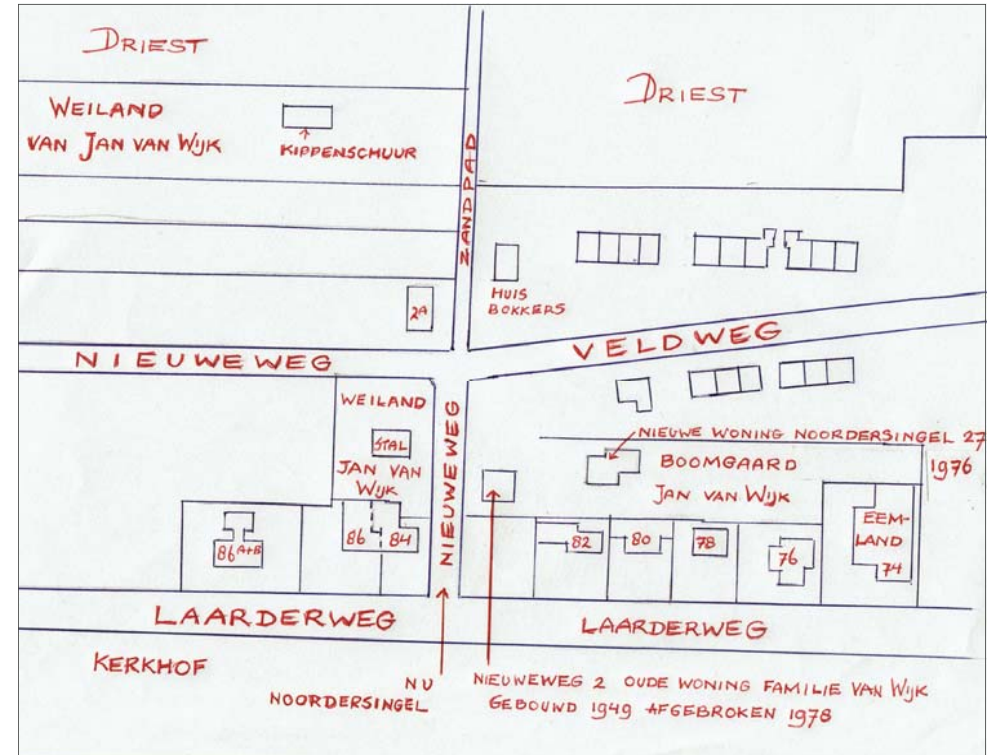 DRIEST
DRIEST
WEILAND
VAN JAN VAN WIJK
KIPPENSCHUUR
ZANDPAD
HUIS
BOKKERS
2A
NIEUWEWEG
VELDWEG
WEILAND
STAL
JAN VAN
WIJK
NIEUWEWEG
NIEUWE WONING NOORDERSINGEL 27
1976
BOOMGAARD
JAN VAN WIJK
86 A+B
86
84
82
80
78
76
EEM-
LAND
74
LAARDERWEG
LAARDERWEG
KERKHOF
NU
NOORDERSINGEL
NIEUWEWEG 2 OUDE WONING FAMILIE VAN WIJK
GEBOUWD 1949 AFGEBROKEN 1978